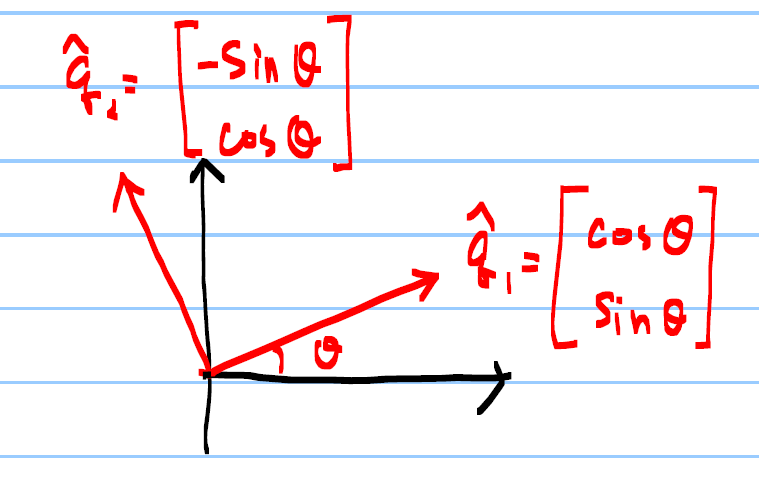 q̂₂ = [-sin θ
cos θ]
q̂₁ = [cos θ
sin θ]
θ